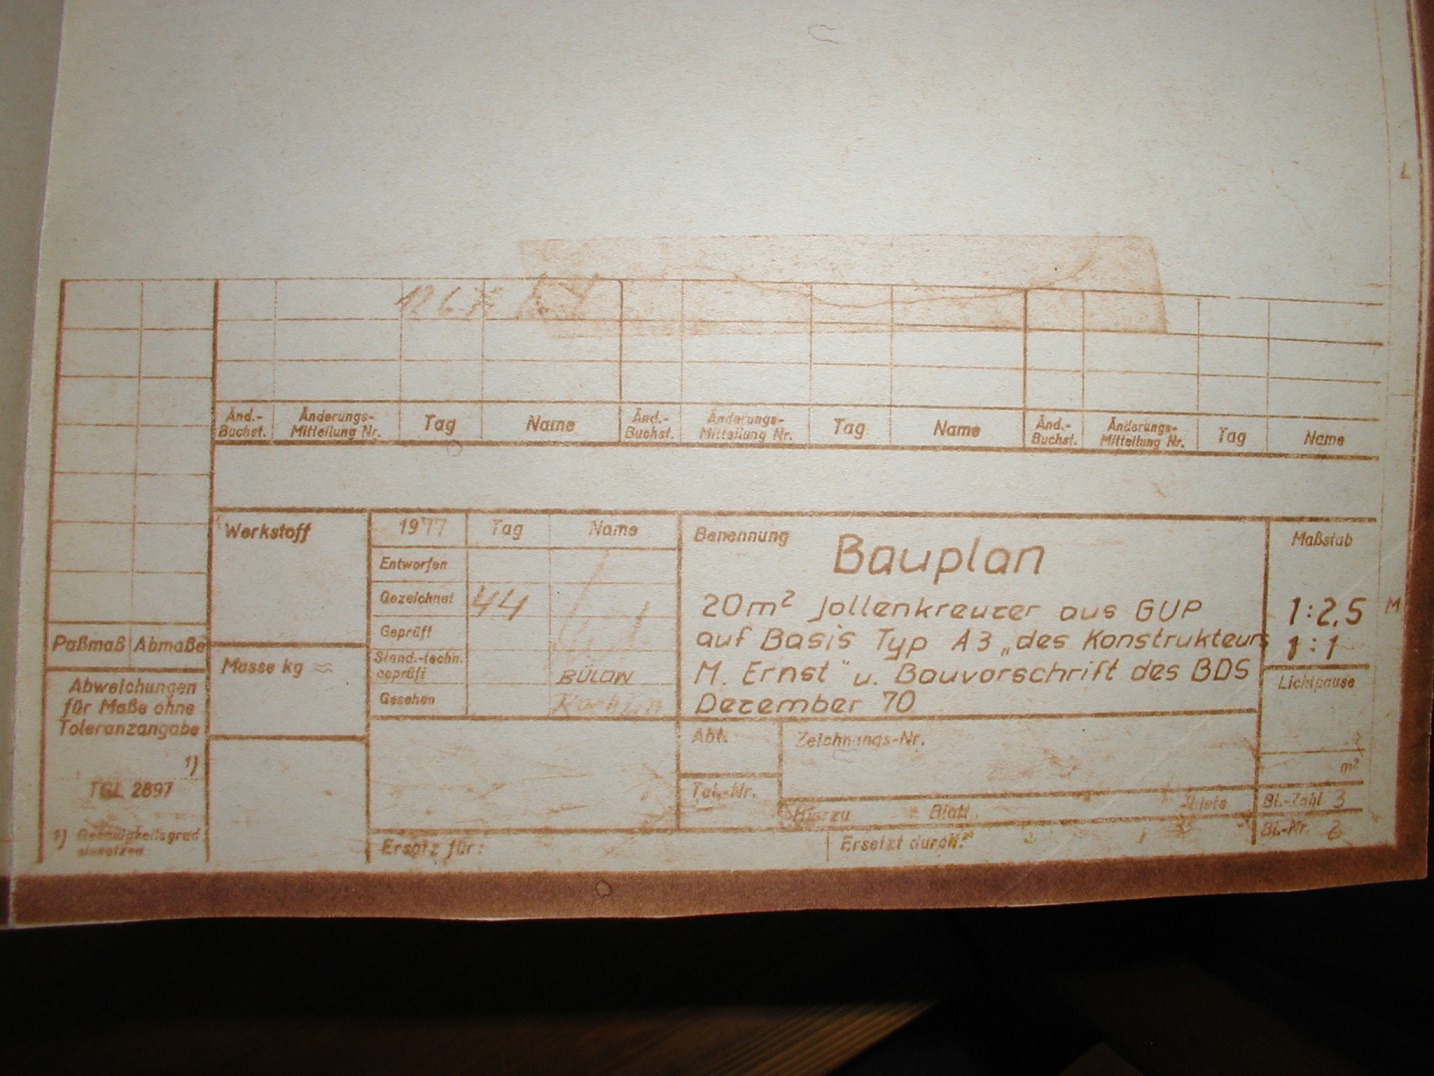 Änd.-Buchst. Änderungs-Mitteilung Nr. Tag Name Änd.-Buchst. Änderungs-Mitteilung Nr. Tag Name Änd.-Buchst. Änderungs-Mitteilung Nr. Tag Name
Werkstoff
1977 Tag Name
Entworfen
Gezeichnet 4.4
Geprüft
Stand.-techn. geprüft BÜLOW
Gesehen
Benennung
Bauplan
20m² Jollenkreuzer aus GUP
auf Basis Typ A3 „des Konstrukteurs
M. Ernst" u. Bauvorschrift des BDS
Dezember 70
Maßstab
1:2,5
1:1
M
L
Paßmaß Abmaße
Masse kg ≈
Lichtpause
m²
Abweichungen
für Maße ohne
Toleranzangabe
1)
TGL 2897
1) Genauigkeitsgrad
einsetzen
Abt. Zeichnungs-Nr.
Tel.-Nr.
Hierzu Blatt Liste
Bl.-Zahl 3
Bl.-Nr. 2
Ersatz für: Ersetzt durch: